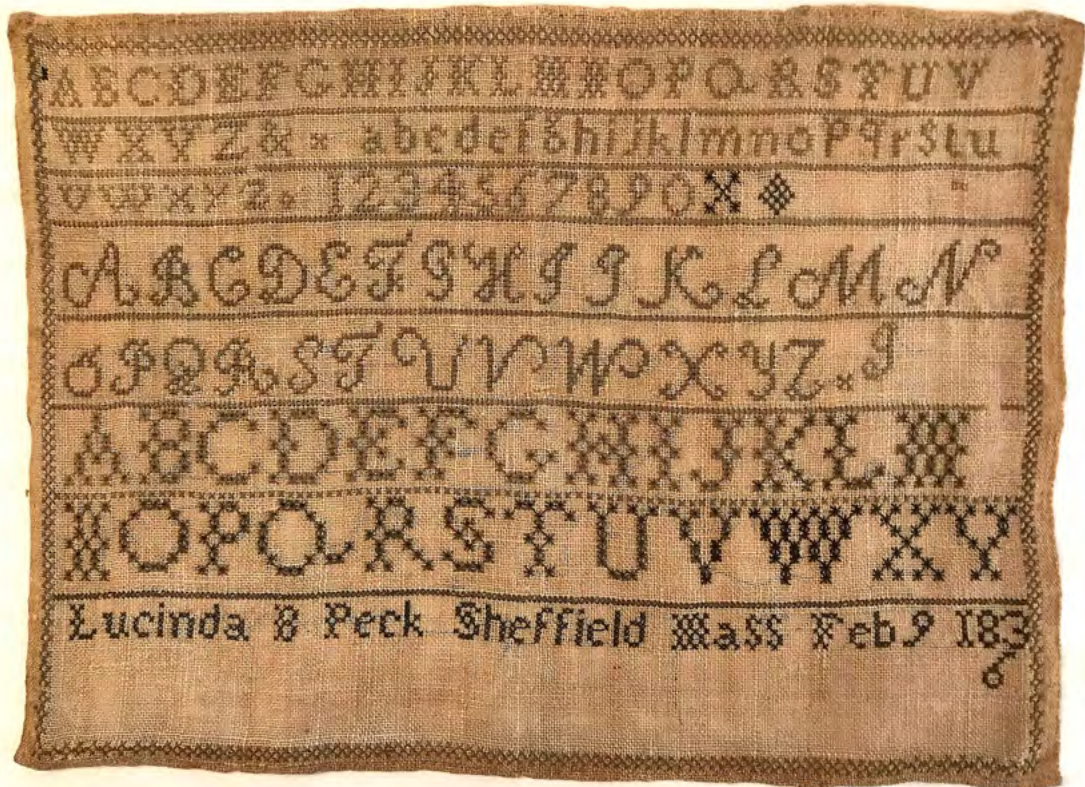 A B C D E F G H I J K L M N O P Q R S T U V
W X Y Z & a b c d e f g h i j k l m n o p q r s t u
v w x y z 1 2 3 4 5 6 7 8 9 0
A B C D E F G H I J K L M N
O P Q R S T U V W X Y Z J
A B C D E F G H I J K L M
N O P Q R S T U V W X Y
Lucinda B Peck Sheffield Mass Feb 9 183
6